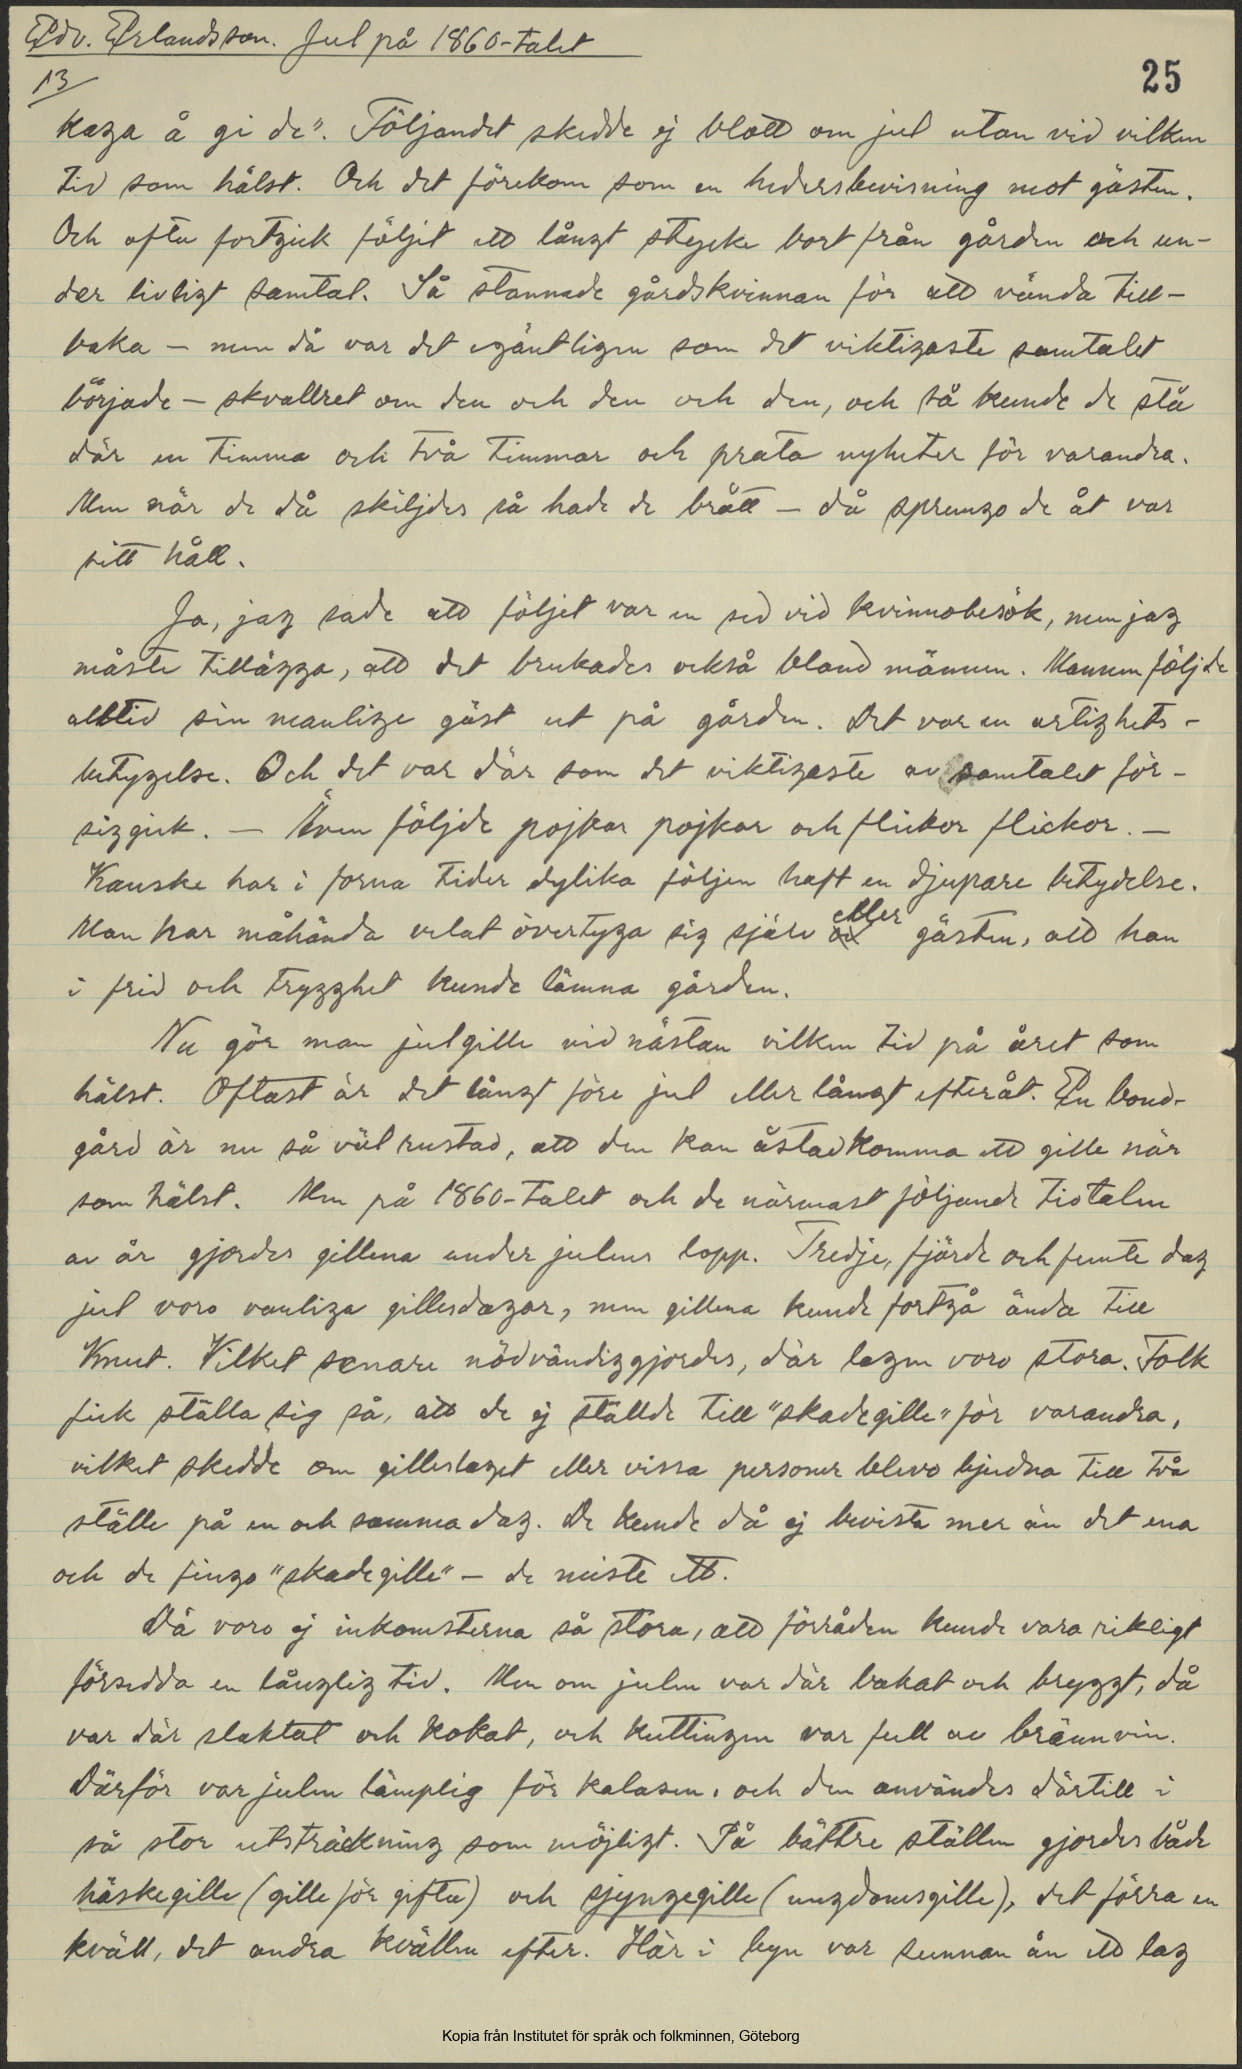 Edv. Erlandsson. Jul på 1860-talet
13
25
kaga å gi de". Följandet skedde ej blott om jul utan vid vilken
tid som hälst. Och det förekom som en hedersbevisning mot gästen.
Och ofta fortgick följet ett långt stycke bort från gården och un-
der livligt samtal. Så stannade gårdskvinnan för att vända till-
baka – men då var det egäntligen som det viktigaste samtalet
började – skvallret om den och den och den, och så kunde de stå
där en timma och två timmar och prata nyheter för varandra.
Men när de då skiljdes så hade de brått – då sprungo de åt var
sitt håll.
Ja, jag sade att följet var en sed vid kvinnobesök, men jag
måste tillägga, att det brukades också bland männen. Mannen följde
alltid sin manlige gäst ut på gården. Det var en artighets-
betygelse. Och det var där som det viktigaste av samtalet för-
siggick. – Även följde pojkar pojkar och flickor flickor. –
Kanske har i forna tider dylika följen haft en djupare betydelse.
Man har måhända velat övertyga sig själv eller gästen, att han
i frid och trygghet kunde lämna gården.
Nu gör man julgille vid nästan vilken tid på året som
hälst. Oftast är det långt före jul eller långt efteråt. En bond-
gård är nu så väl rustad, att den kan åstadkomma ett gille när
som hälst. Men på 1860-talet och de närmast följande tiotalen
av år gjordes gillena under julens lopp. Tredje, fjärde och femte dag
jul voro vanliga gillesdagar, men gillena kunde fortgå ända till
Knut. Vilket senare nödvändiggjordes, där lagen voro stora. Folk
fick ställa sig så, att de ej ställde till "skadegille" för varandra,
vilket skedde om gilleslaget eller vissa personer blevo bjudna till två
ställe på en och samma dag. De kunde då ej bevista mer än det ena
och de fingo "skadegille" – de miste ett.
Då voro ej inkomsterna så stora, att förråden kunde vara rikligt
försedda en långlig tid. Men om julen var där bakat och bryggt, då
var där slaktat och kokat, och kuttingen var full av brännvin.
Därför var julen lämplig för kalasen, och den användes därtill i
så stor utsträckning som möjligt. På bättre ställen gjordes både
häskegille (gille för gifta) och sjyngegille (ungdomsgille), det förra en
kväll, det andra kvällen efter. Här i byn var sunnan ån ett lag
Kopia från Institutet för språk och folkminnen, Göteborg